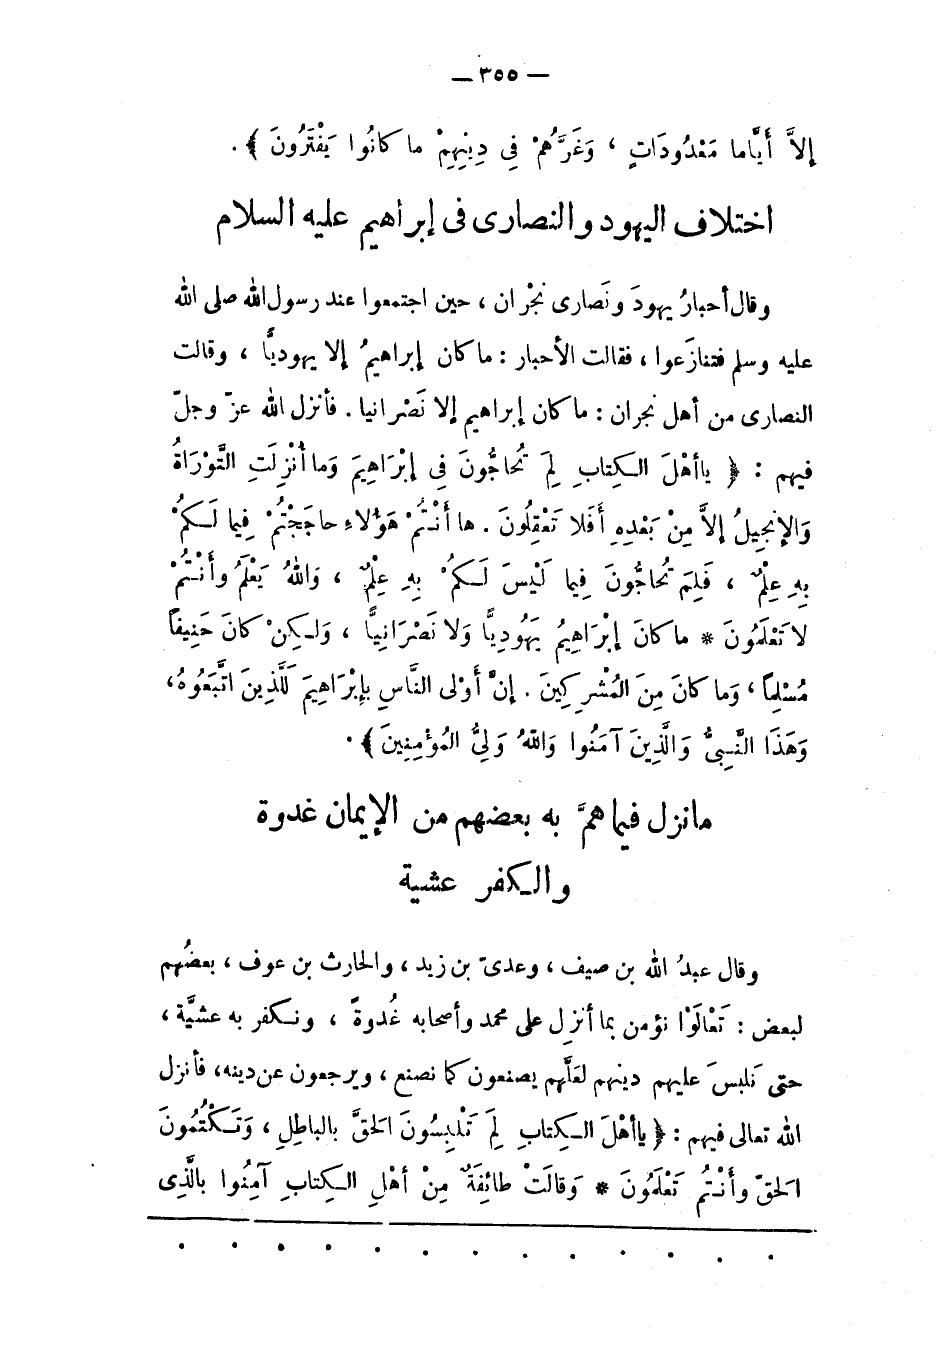 — ٣٥٥ —
إلاَّ أَيَّاما مَعْدُودَاتٍ ، وَغَرَّهُمْ فِى دِينِهِمْ ما كانُوا يَفْتَرُونَ ﴾ .
اختلاف اليهود والنصارى فى إبراهيم عليه السلام
وقال أحبارُ يهودَ ونَصارى نجْران ، حين اجتمعوا عند رسول الله صلى الله
عليه وسلم فتنازَعوا ، فقالت الأحبار : ما كان إبراهيمُ إلا يهوديًّا ، وقالت
النصارى من أهل نجران : ما كان إبراهيم إلا نَصْرانيا . فأنزل الله عزّ وجلّ
فيهم : ﴿ ياأهْلَ الـكِتابِ لِمَ تُحاجُّونَ فِى إبْرَاهِيمَ وَما أُنْزِلَتِ التَّوْرَاةُ
وَالإنجِيلُ إلاَّ مِنْ بَعْدِهِ أَفَلا تَعْقِلُونَ . ها أَنْـتُمْ هَؤُلاءِ حاجَجْتُمْ فِيما لَـكمُْ
بِهِ عِلْمٌ ، فَلِمَ تُحاجُّونَ فِيما لَيْسَ لَـكمُْ بِهِ عِلْمٌ ، وَاللهُ يَعْلَمُ وأَنْـتُمْ
لا تَعْلَمُونَ * ما كانَ إبْرَاهِيمُ يَهُودِيًّا وَلا نَصْرَانِيًّا ، وَلـكِنْ كانَ حَنِيفاً
مُسْلِماً ، وَما كانَ مِنَ المُشْرِكِينَ . إنَّ أَوْلى النَّاسِ بِإبْرَاهِيمَ لَلَّذِينَ اتَّبَعُوهُ ،
وَهَذَا النَّـبِىُّ وَالَّذِينَ آمَنُوا وَاللهُ وَلِىُّ المُؤْمِنِينَ ﴾ .
مانزل فيما همَّ به بعضهم من الإيمان غدوة
والـكفر عشية
وقال عبدُ الله بن صيف ، وعدىّ بن زيد ، والحارث بن عوف ، بعضُهم
لبعض : تَعْالَوْا نؤمن بما أنزل على محمد وأصحابه غُدوةً ، ونـكفر به عشيَّة ،
حتى نَلبسَ عليهم دينهم لعَلَّهم يصنعون كما نصنع ، ويرجعون عن دينه ، فأنزل
الله تعالى فيهم : ﴿ ياأهْلَ الـكِتابِ لِمَ تَلْبِسُونَ الحَقَّ بالباطِلِ ، وَتَـكْتُمُونَ
الحَقّ وأَنْـتُمْ تَعْلَمُونَ * وَقالَتْ طائِفَةٌ مِنْ أهْلِ الـكِتابِ آمِنُوا بالَّذِى